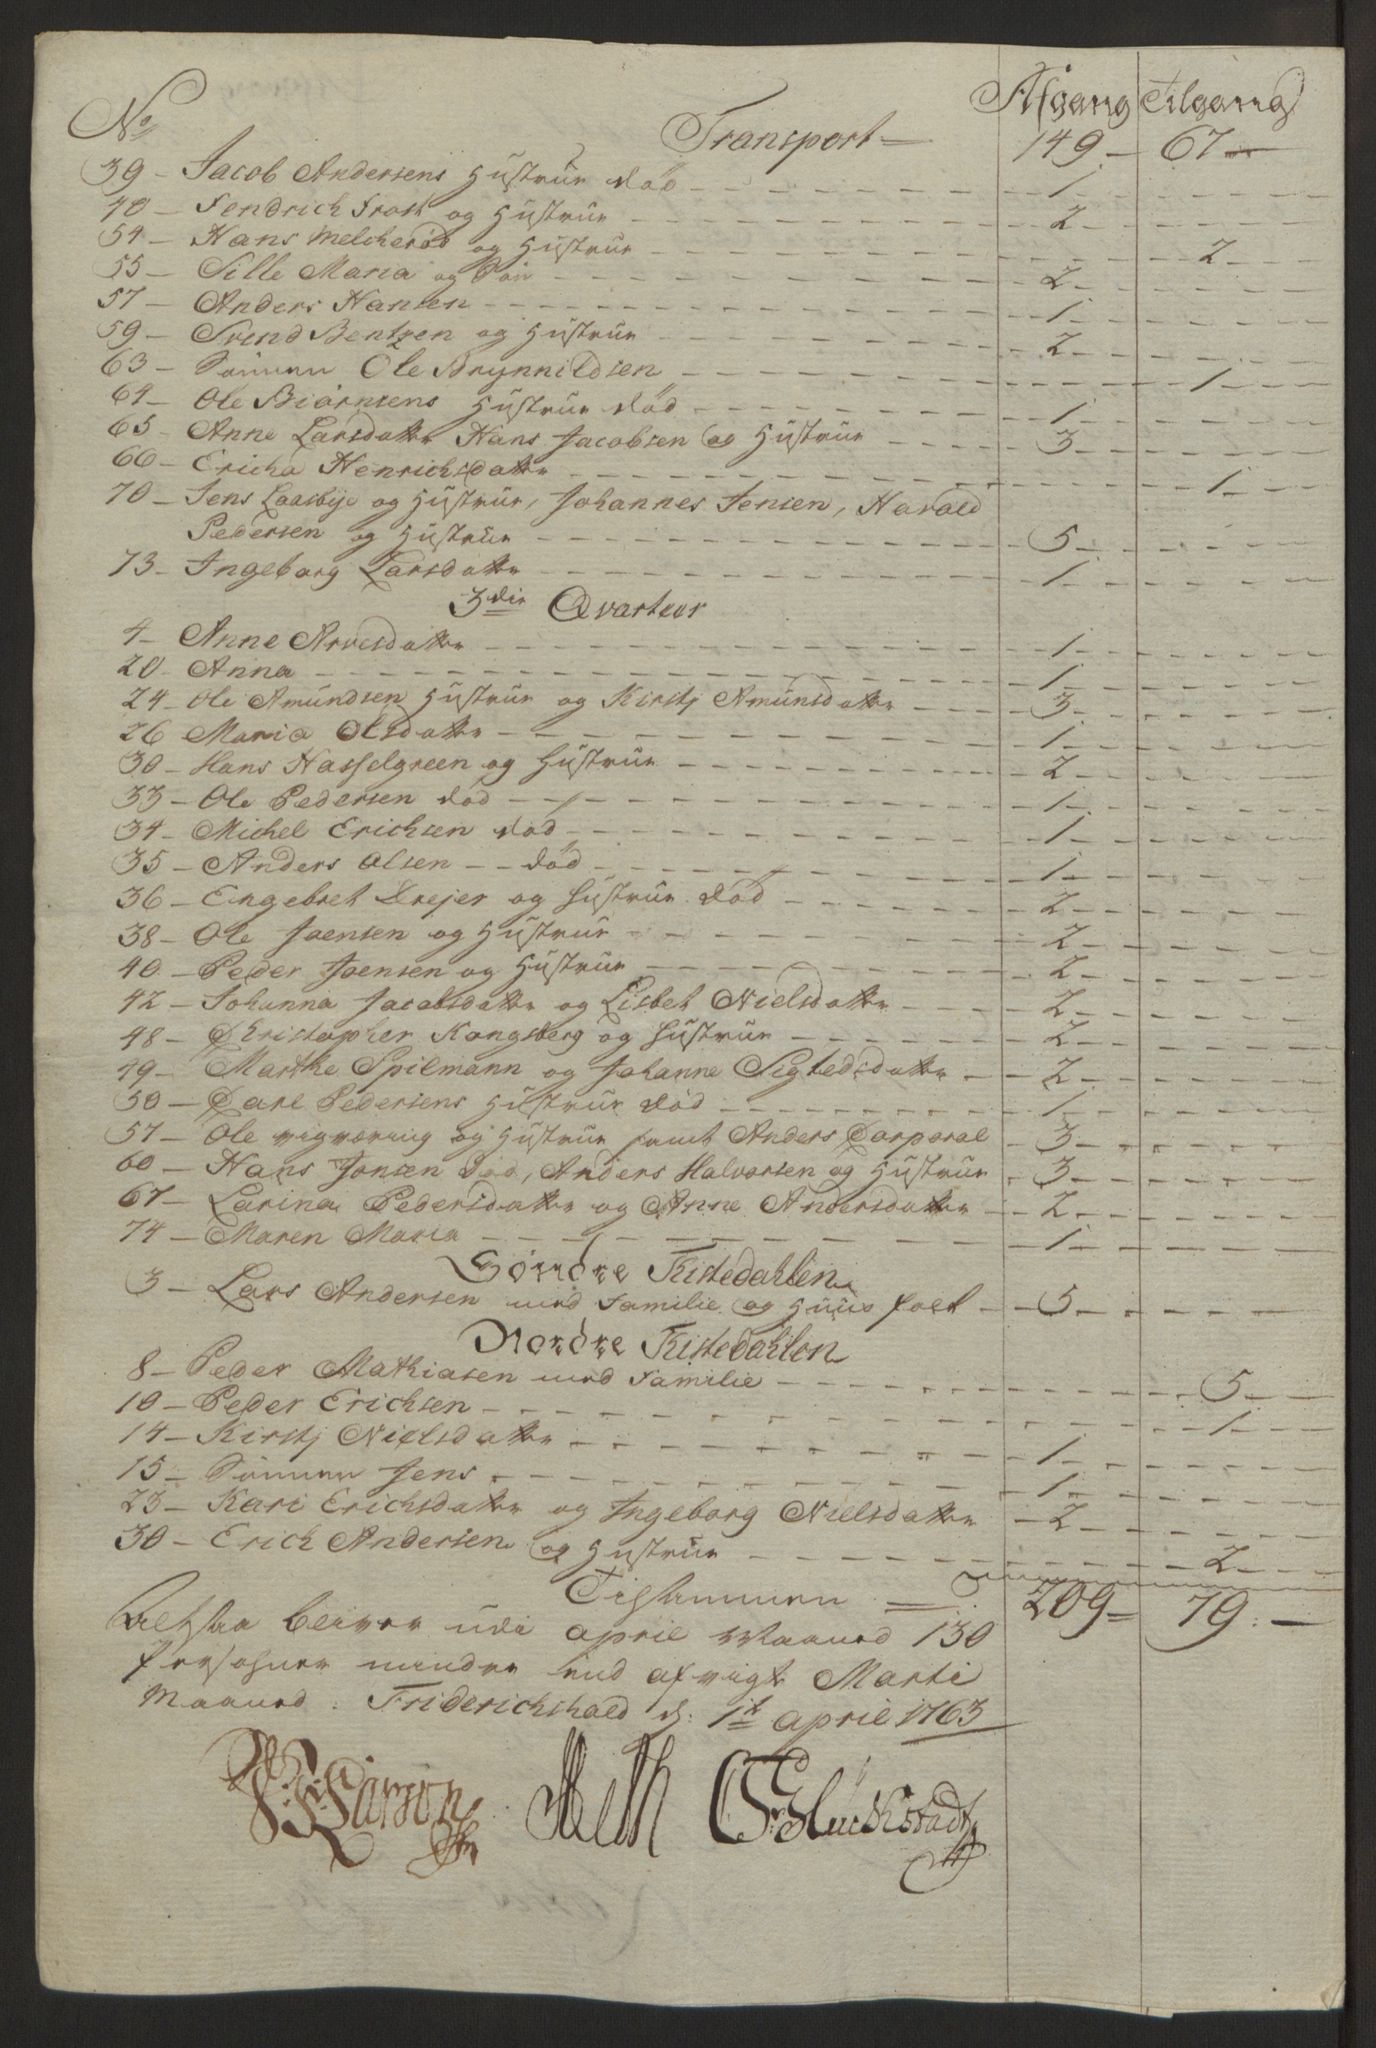 No Afgang Tilgang
Transport — 149 — 67 —
39 — Jacob Andersens Hustrue død — 1
48 — Fendrich Frost og Hustrue — 2
54 — Hans Melcherød og Hustrue — 2
55 — Sille Maria og — 2
57 — Anders Hansen — 1
59 — Svend Bentzen og Hustrue — 2
63 — Ole Brynnildsen — 1
64 — Ole Biörnsens Hustrue død — 1
65 — Anne Larsdatter Hans Jacobsen og Hustrue — 3
66 — Ericha Henrichsdatter — 1
70 — Jens Laasbye og Hustrue, Johannes Jensen, Harald
Pedersen og Hustrue — 5
73 — Ingeborg Larsdatter — 1
3die Qvarteer
4 — Anne Arvesdatter — 1
20 — Anna — 1
24 — Ole Amundsen Hustrue og Kirstj Amunsdatter — 3
26 Maria Olsdatter — 1
30 — Hans Hasselgreen og Hustrue — 2
33 — Ole Pedersen død — 1
34 — Michel Erichsen død — 1
35 — Anders Olsen — død — 1
36 — Engebret Drejer og Hustrue død — 2
38 — Ole Joensen og Hustrue — 2
40 — Peder Joensen og Hustrue — 2
42 — Johanna Jacobsdatter og Lisbet Nielsdatter — 2
48 — Christopher Kongsberg og Hustrue — 2
49 — Marthe Spilmann og Johanne Sigledsdatter — 2
50 — Carl Pedersens Hustrue død — 1
57 — Ole vigværing og Hustrue samt Anders Corporal — 3
60 — Hans Jonsen død, Anders Halvorsen og Hustrue — 3
67 — Larina Pedersdatter og Anne Andersdatter — 2
74 — Maren Maria — 1
Söndre Tistedahlen
3 — Lars Andersen med Familie og Huus folk — 5
Nordre Tistedahlen
8 — Peder Mathiasen med Familie — 5
10 — Peder Erichsen — 1
14 — Kirstj Nielsdatter — 1
15 — Jens — 1
23 — Kari Erichsdatter og Ingeborg Nielsdatter — 2
30 — Erich Andersen og Hustrue — 2
Tilsammen — 209 — 79 —
Altsaa bliver udi april Maaned 130
personer mindre end afvigte Marti
Maaned. Friderichshald d: 1t april 1763
Larson Meth Glückstadt